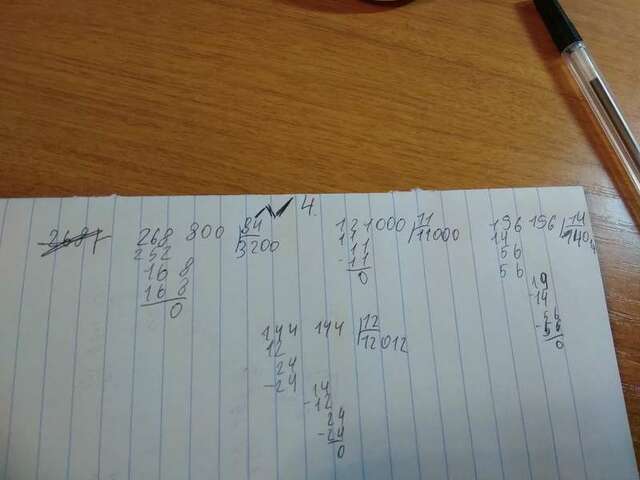 4.
268 800 84
252 3200
16 8
16 8
0
121000 11
11 11000
11
-11
0
196 196 14
14 140
56
56
19
-14
56
-56
0
144 144 12
12 12012
24
-24
14
-12
24
-24
0